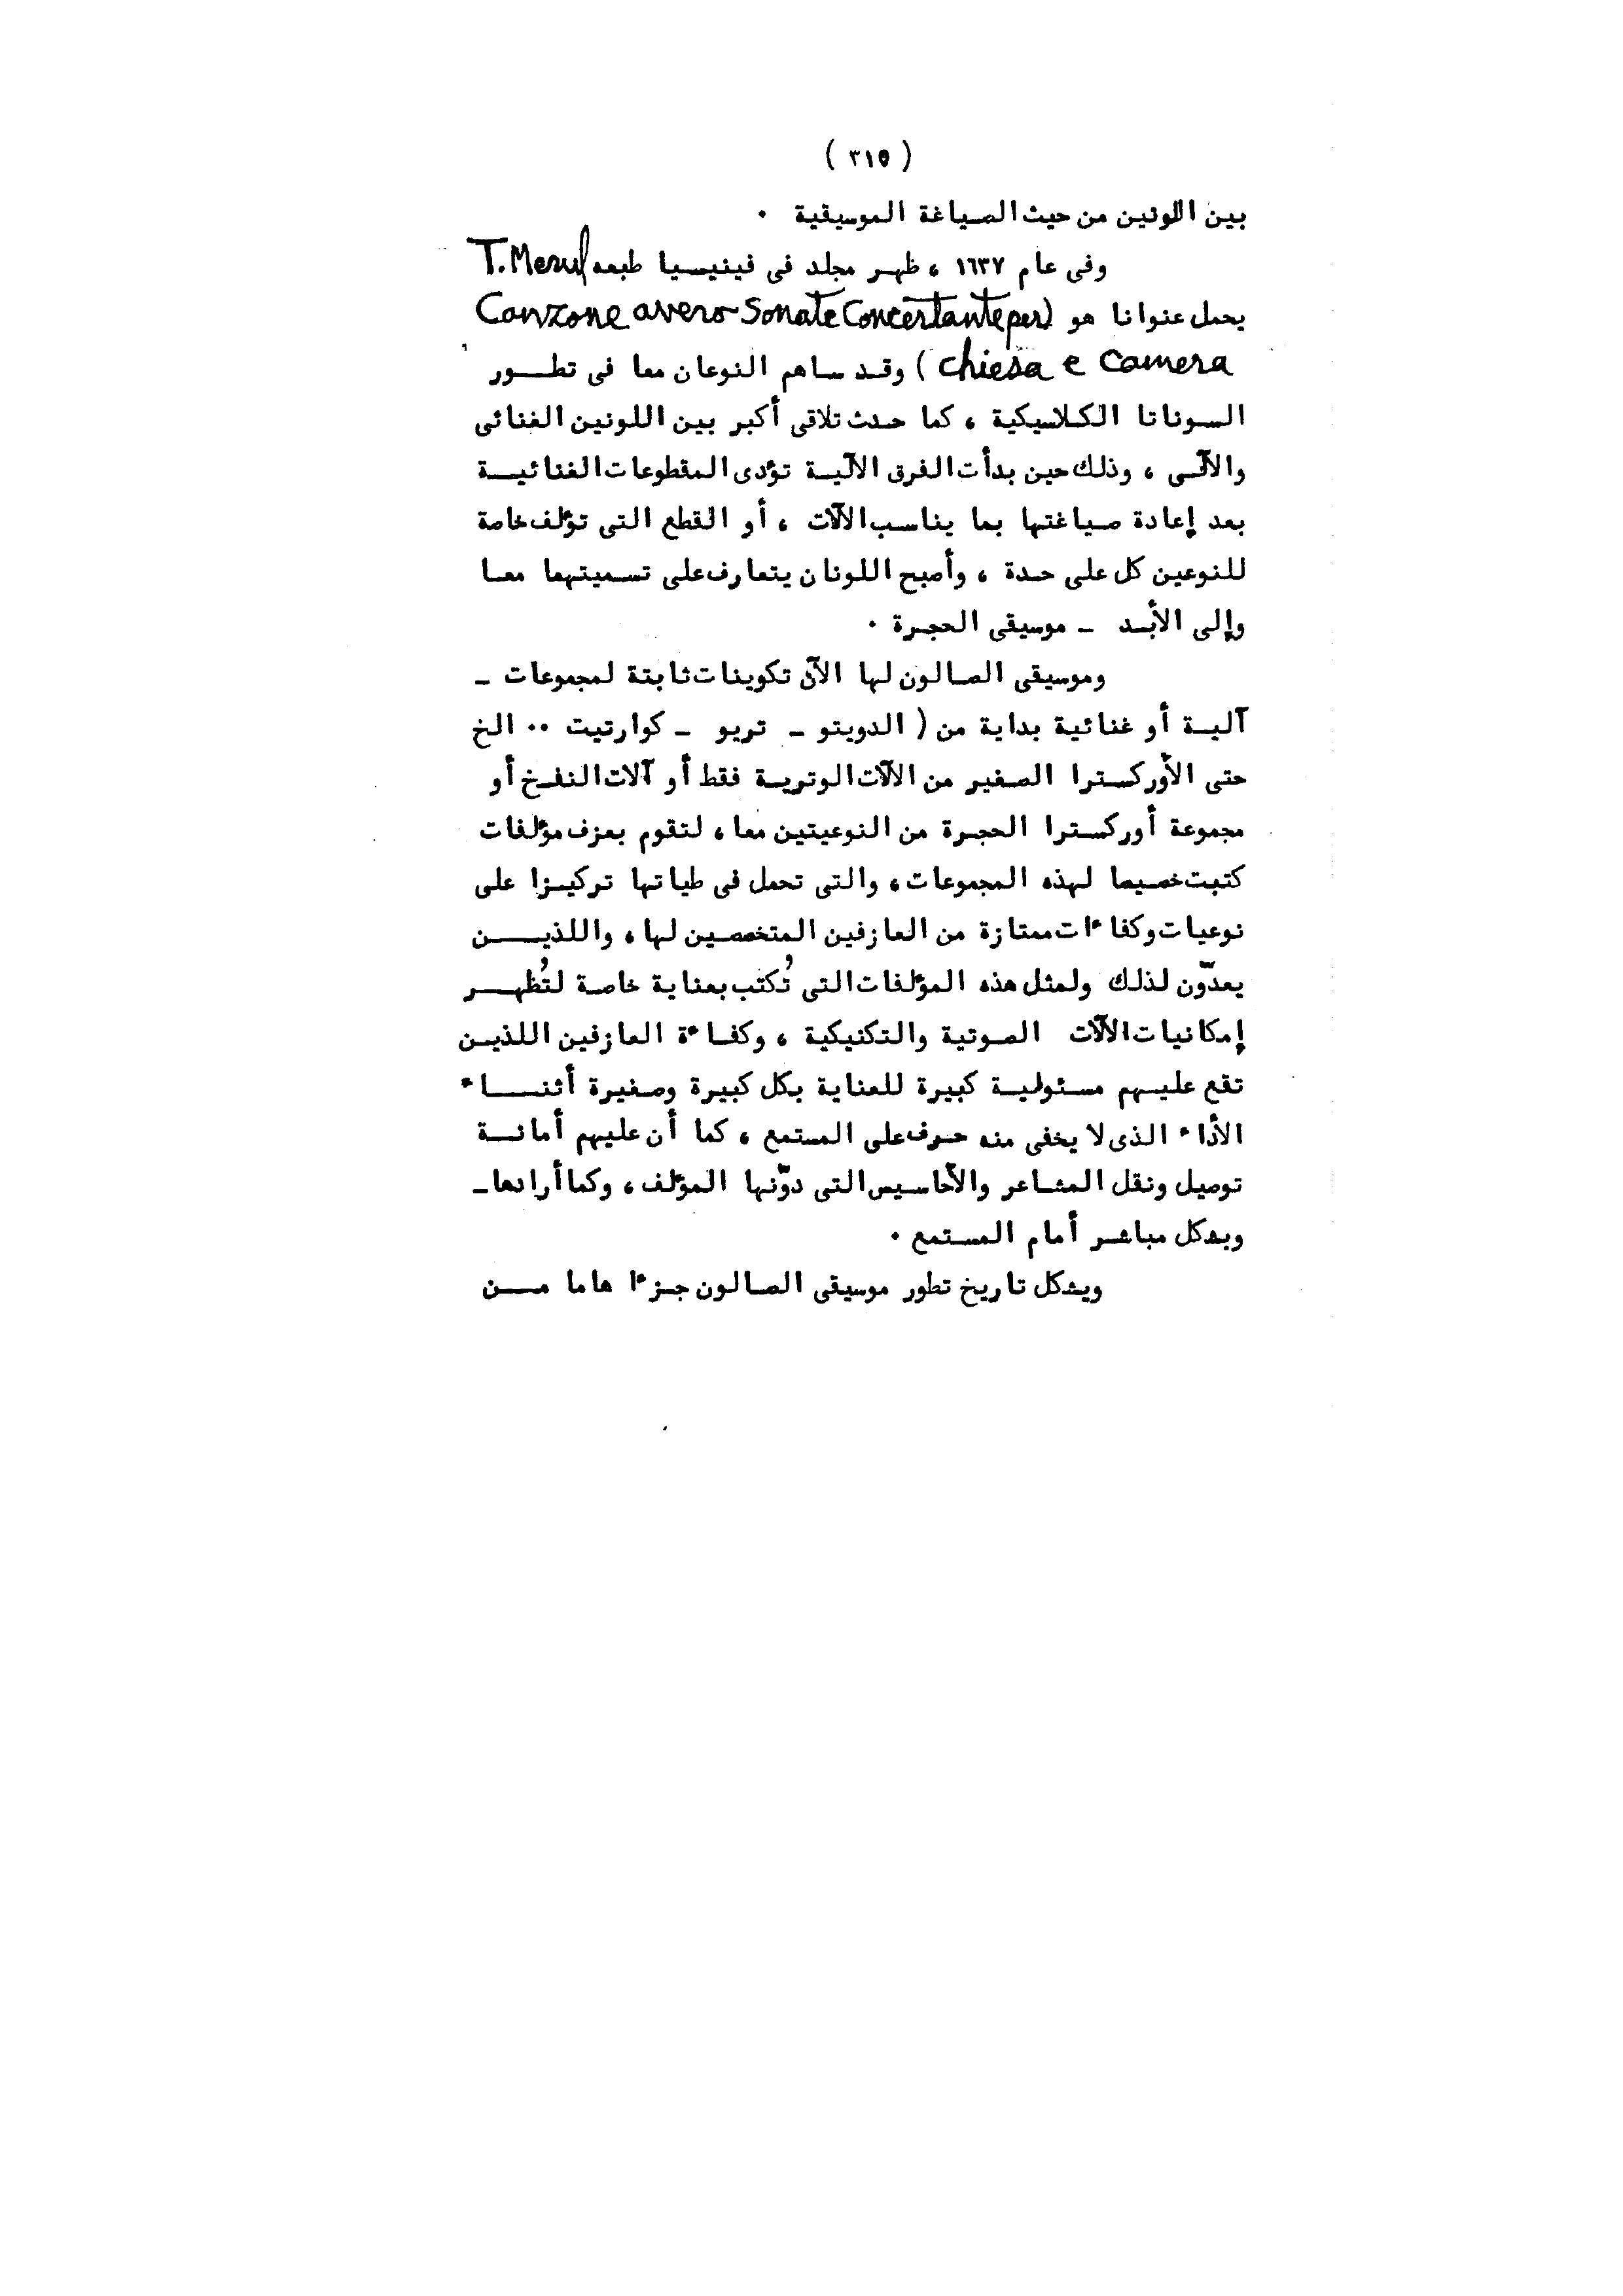 ( ٣١٥ )
بين اللونين من حيث الصياغة الموسيقية ٠
وفى عام ١٦٣٧ ، ظهر مجلد فى فينيسيا طبعه T. Merul
يحمل عنوانا هو (Canzone avero Sonate Concertante per
chiesa e camera ) وقد ساهم النوعان معا فى تطور
السوناتا الكلاسيكية ، كما حدث تلاقى أكبر بين اللونين الغنائى
والآلى ، وذلك حين بدأت الفرق الآلية تؤدى المقطوعات الغنائية
بعد إعادة صياغتها بما يناسب الآلات ، أو القطع التى تؤلف خاصة
للنوعين كل على حدة ، وأصبح اللونان يتعارف على تسميتهما معا
وإلى الأبد _ موسيقى الحجرة ٠
وموسيقى الصالون لها الآن تكوينات ثابتة لمجموعات _
آلية أو غنائية بداية من ( الدويتو _ تريو _ كوارتيت ٠٠ الخ
حتى الأوركسترا الصغير من الآلات الوترية فقط أو آلات النفخ أو
مجموعة أوركسترا الحجرة من النوعيتين معا ، لتقوم بعزف مؤلفات
كتبت خصيصا لهذه المجموعات ، والتى تحمل فى طياتها تركيزا على
نوعيات وكفاءات ممتازة من العازفين المتخصصين لها ، واللذين
يعدّون لذلك ولمثل هذه المؤلفات التى تُكتب بعناية خاصة لتُظهر
إمكانيات الآلات الصوتية والتكنيكية ، وكفاءة العازفين اللذين
تقع عليهم مسئولية كبيرة للعناية بكل كبيرة وصغيرة أثناء
الأداء الذى لا يخفى منه حرف على المستمع ، كما أن عليهم أمانة
توصيل ونقل المشاعر والأحاسيس التى دوّنها المؤلف ، وكما أرادها _
وبشكل مباشر أمام المستمع ٠
ويشكل تاريخ تطور موسيقى الصالون جزءا هاما من